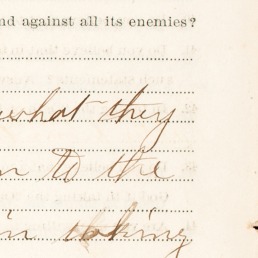 nd against all its enemies?
what they
to the
in taking